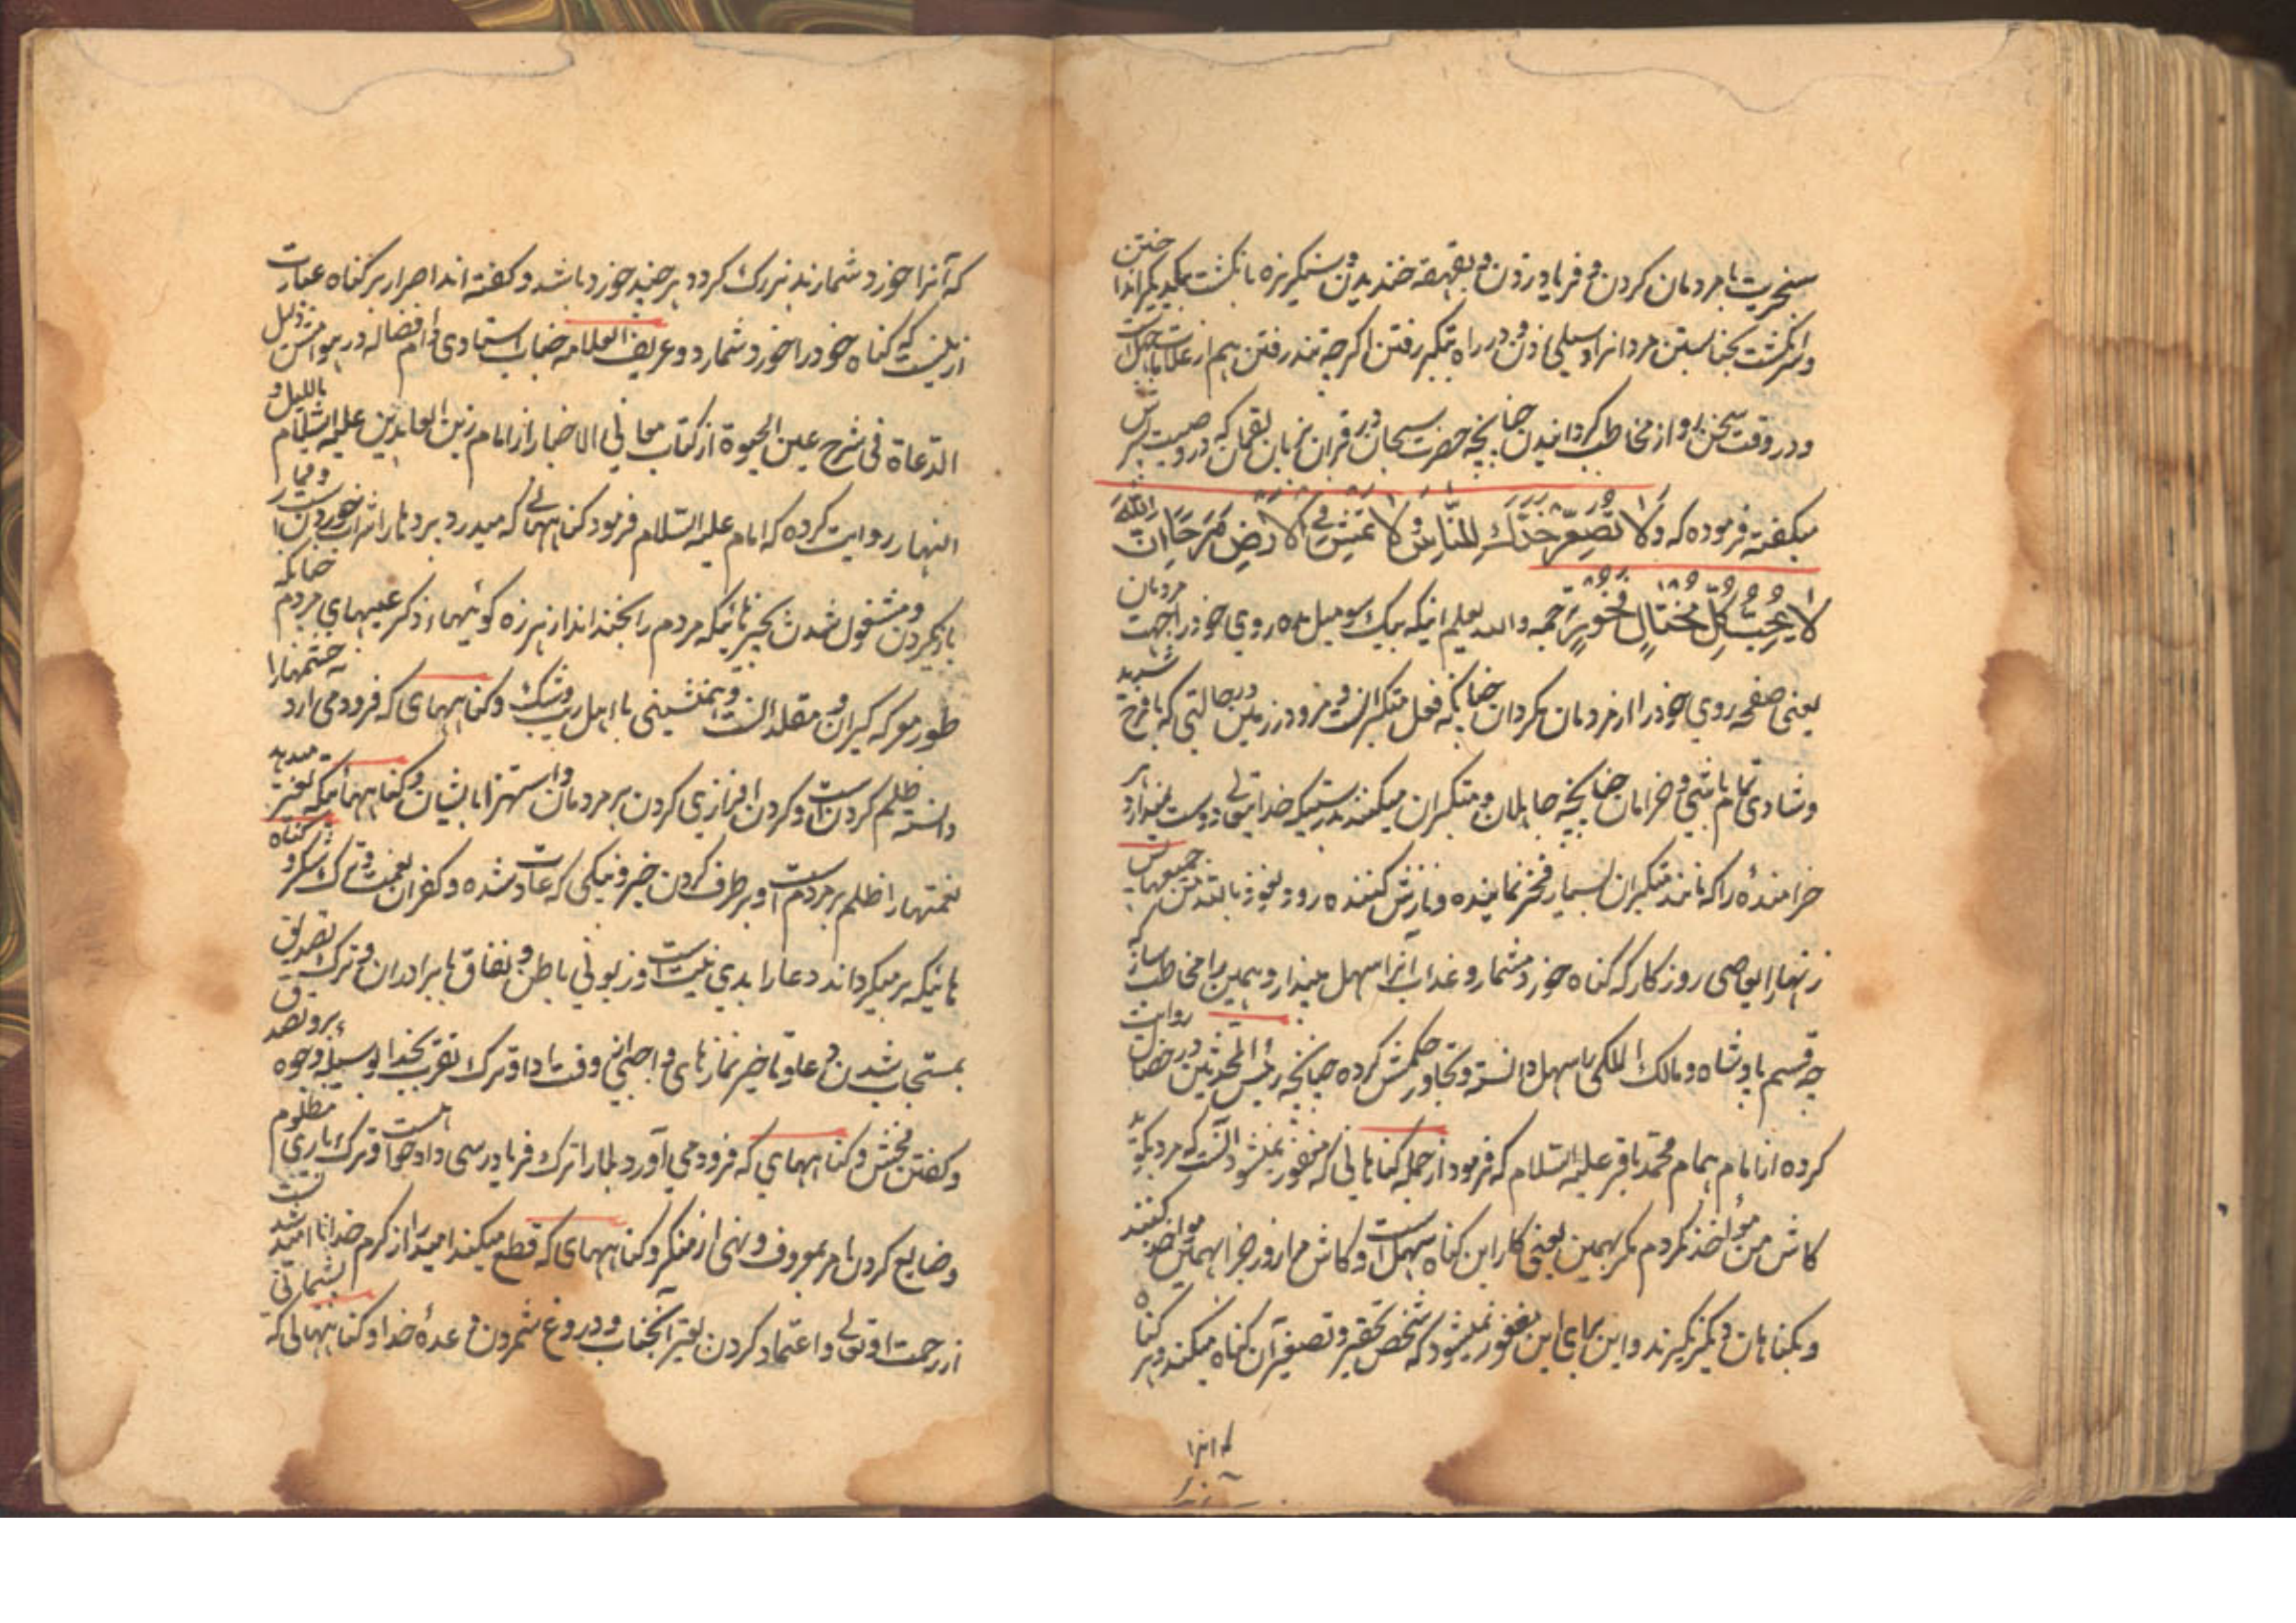 سخریت با مردمان کردن و فریاد زدن و بقهقهه خندیدن و سنگریزه بانگشت بیکدیگر انداختن
و انگشت بحنا بستن مردانرا و سیلی زدن و در راه بتکبر رفتن اگرچه تند رفتن هم از علامات
و در وقت سخن رو از مخاطب گردانیدن چنانچه حضرت سبحان در قران بزبان لقمان که در وصیت پسرش
میگفته فرموده که وَلَا تُصَعِّرْ خَدَّكَ لِلنَّاسِ وَلَا تَمْشِ فِي الْاَرْضِ مَرَحًا اِنَّ اللّٰهَ
لَا يُحِبُّ كُلَّ مُخْتَالٍ فَخُورٍ ترجمه والله یعلم اینکه بیک سو میل مده روی خود را جهت مردمان
یعنی صفحه روی خود را از مردمان مگردان چنانکه فعل متکبرانست و مرو در زمین در حالتی که با فرح شدید
و شادی تمام باشی و خرامان چنانچه جاهلان و متکبران میکنند بدرستیکه خدایتعالی دوست نمیدارد هر
خرامندهٔ را که مانند متکبران بسیار فخر نماینده و نازش کننده رود و نعوذ بالله من جمیعها پس
زنهار ایعاصی روزکار که کناه خورد مشمار و عذاب آنرا سهل مپندار و ببین برا مخاطب ساز که
چه قسم پادشاه و مالک الملکی را سهل دانسته و تجاوز حکمش کرده چنانچه رئیس المحدثین در خصال روایت
کرده از امام همام محمد باقر علیه السلام که فرمود از جمله کناهانی که مغفور نمیشود آنست که مرد بگوید
کاش من مؤاخذ نکردم مگر بهمین یعنی کار این کناه سهل است و کاش مرا روز جزا بهمین مواخذ کنند
و بکناهان دیگر نگیرند و این برای این مغفور نمیشود که شخص تحقیر و تصغیر آن کناه میکند و هر کناه
که آنرا
که آنرا خورد شمارند بزرک کردد هر چند خورد باشد و کفته اند اصرار بر کناه عبارت
ازینست که کناه خود را خورد شمارد و عریف العلامه جناب استادی دام افضاله در هوامش ذیل
الدعاة فی شرح عین الحیوة از کتاب معانی الاخبار از امام زین العابدین علیه السلام باللیل و
النهار روایت کرده که امام علیه السلام فرمود کناههائی که میدرد پردها را شراب خوردن است و قمار
بازی کردن و مشغول شدن بچیزهائیکه مردم را بخنداند از هرزه کوئیها و ذکر عیبهای مردم چنانکه
طور معرکه کیران و مقلدانست و همنشینی با اهل ریب و شک و کناههای که فرود می ارد خشمها را
دانسته ظلم کردن است و کردن افرازی کردن بر مردمان و استهزا بایشان و کناههائیکه تغییر میدهد
نعمتها را ظلم بر مردم است و بر طرف کردن خیر و نیکی که عادت شده و کفران نعمت و ترک شکر و کناه
هائیکه بر میکرداند دعا را بدی نیت است و زبونی باطن و نفاق با برادران و ترک تصدیق
بمستجاب شدن دعا و تاخیر نمازهای واجبی از وقت ادا و ترک تقرب بخدا بوسیلهٔ وجوه بر و تصدق
و کفتن فحش و کناههای که فرود می آورد بلا را ترک فریادرسی دادخواه است و ترک یاری مظلوم
و ضایع کردن امر بمعروف و نهی از منکر و کناههای که قطع میکند امید را از کرم خدا نا امید شدنست
از رحمت او تعالی و اعتماد کردن بغیر آنجناب و دروغ شمردن وعدهٔ خدا و کناههائی که